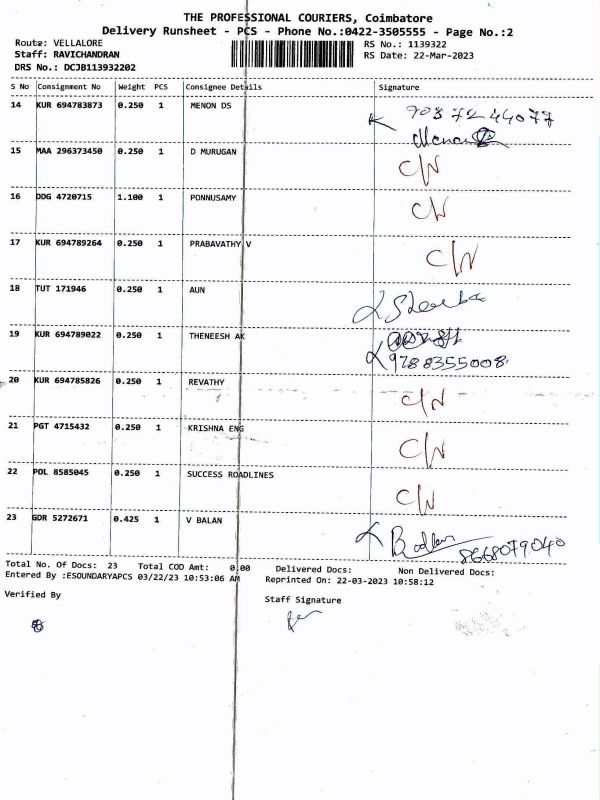 THE PROFESSIONAL COURIERS, Coimbatore
Delivery Runsheet - PCS - Phone No.:0422-3505555 - Page No.:2
Route: VELLALORE RS No.: 1139322
Staff: RAVICHANDRAN RS Date: 22-Mar-2023
DRS No.: DCJB113932202
S No Consignment No Weight PCS Consignee Details Signature
14 KUR 694783873 0.250 1 MENON DS
Menon
15 MAA 296373450 0.250 1 D MURUGAN C/N
16 DDG 4720715 1.100 1 PONNUSAMY C/N
17 KUR 694789264 0.250 1 PRABAVATHY V C/N
18 TUT 171946 0.250 1 AUN
19 KUR 694789022 0.250 1 THENEESH AK
9788355008
20 KUR 694785826 0.250 1 REVATHY C/N
21 PGT 4715432 0.250 1 KRISHNA ENG C/N
22 POL 8585045 0.250 1 SUCCESS ROADLINES C/N
23 GDR 5272671 0.425 1 V BALAN 8668079040
Total No. Of Docs: 23 Total COD Amt: 0.00 Delivered Docs: Non Delivered Docs:
Entered By :ESOUNDARYAPCS 03/22/23 10:53:06 AM Reprinted On: 22-03-2023 10:58:12
Verified By Staff Signature